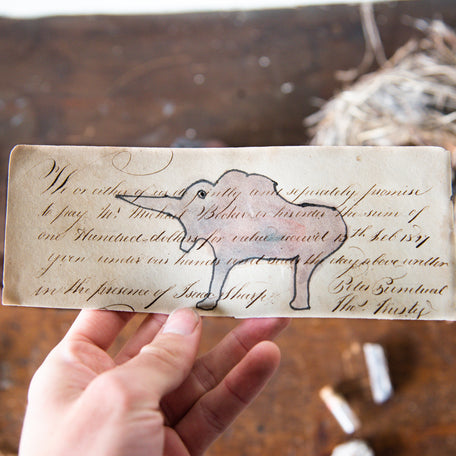 We or either of us jointly and separately promise
to pay Mr. Michael Becker or his order the sum of
one Hundred dollars for value received 15th Feb 1827
given under our hands and seals the day above written
in the presence of Isaac Sharpe Peter Perpetual
Thos.